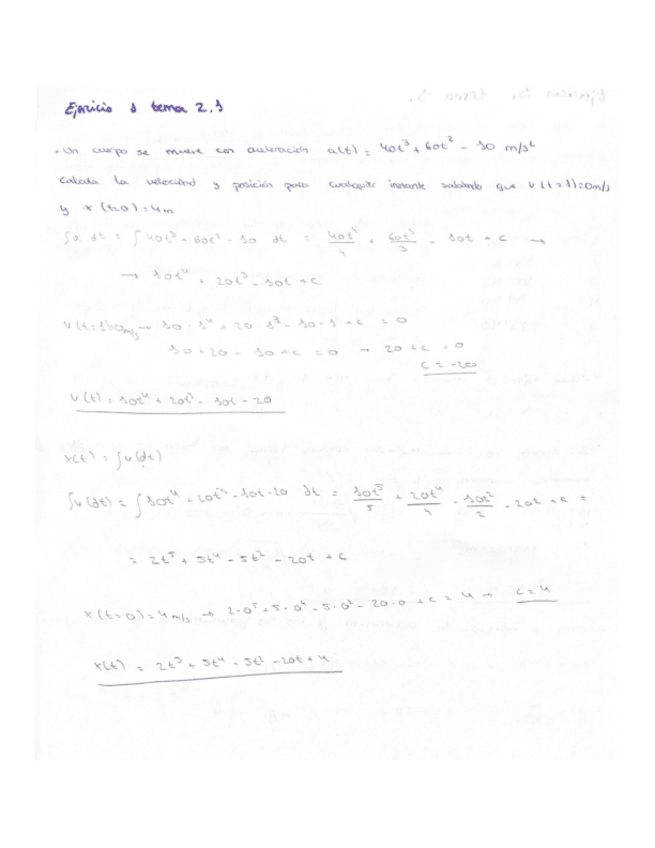 Ejercicio 1 tema 2.1
- Un cuerpo se mueve con aceleración a(t) = 40t³ + 60t² - 10 m/s²
calcula la velocidad y posición para cualquier instante sabiendo que v(t=1)=0m/s
y x(t=0)=4m
∫a dt = ∫40t³ + 60t² - 10 dt = 40t⁴/4 + 60t³/3 - 10t + c →
→ 10t⁴ + 20t³ - 10t + c
v(t=1)=0m/s → 10·1⁴ + 20·1³ - 10·1 + c = 0
10 + 20 - 10 + c = 0 → 20 + c = 0
c = -20
v(t) = 10t⁴ + 20t³ - 10t - 20
x(t) = ∫v(dt)
∫v(dt) = ∫10t⁴ + 20t³ - 10t - 20 dt = 10t⁵/5 + 20t⁴/4 - 10t²/2 - 20t + c =
= 2t⁵ + 5t⁴ - 5t² - 20t + c
x(t=0) = 4m/s → 2·0⁵ + 5·0⁴ - 5·0² - 20·0 + c = 4 → c = 4
x(t) = 2t⁵ + 5t⁴ - 5t² - 20t + 4